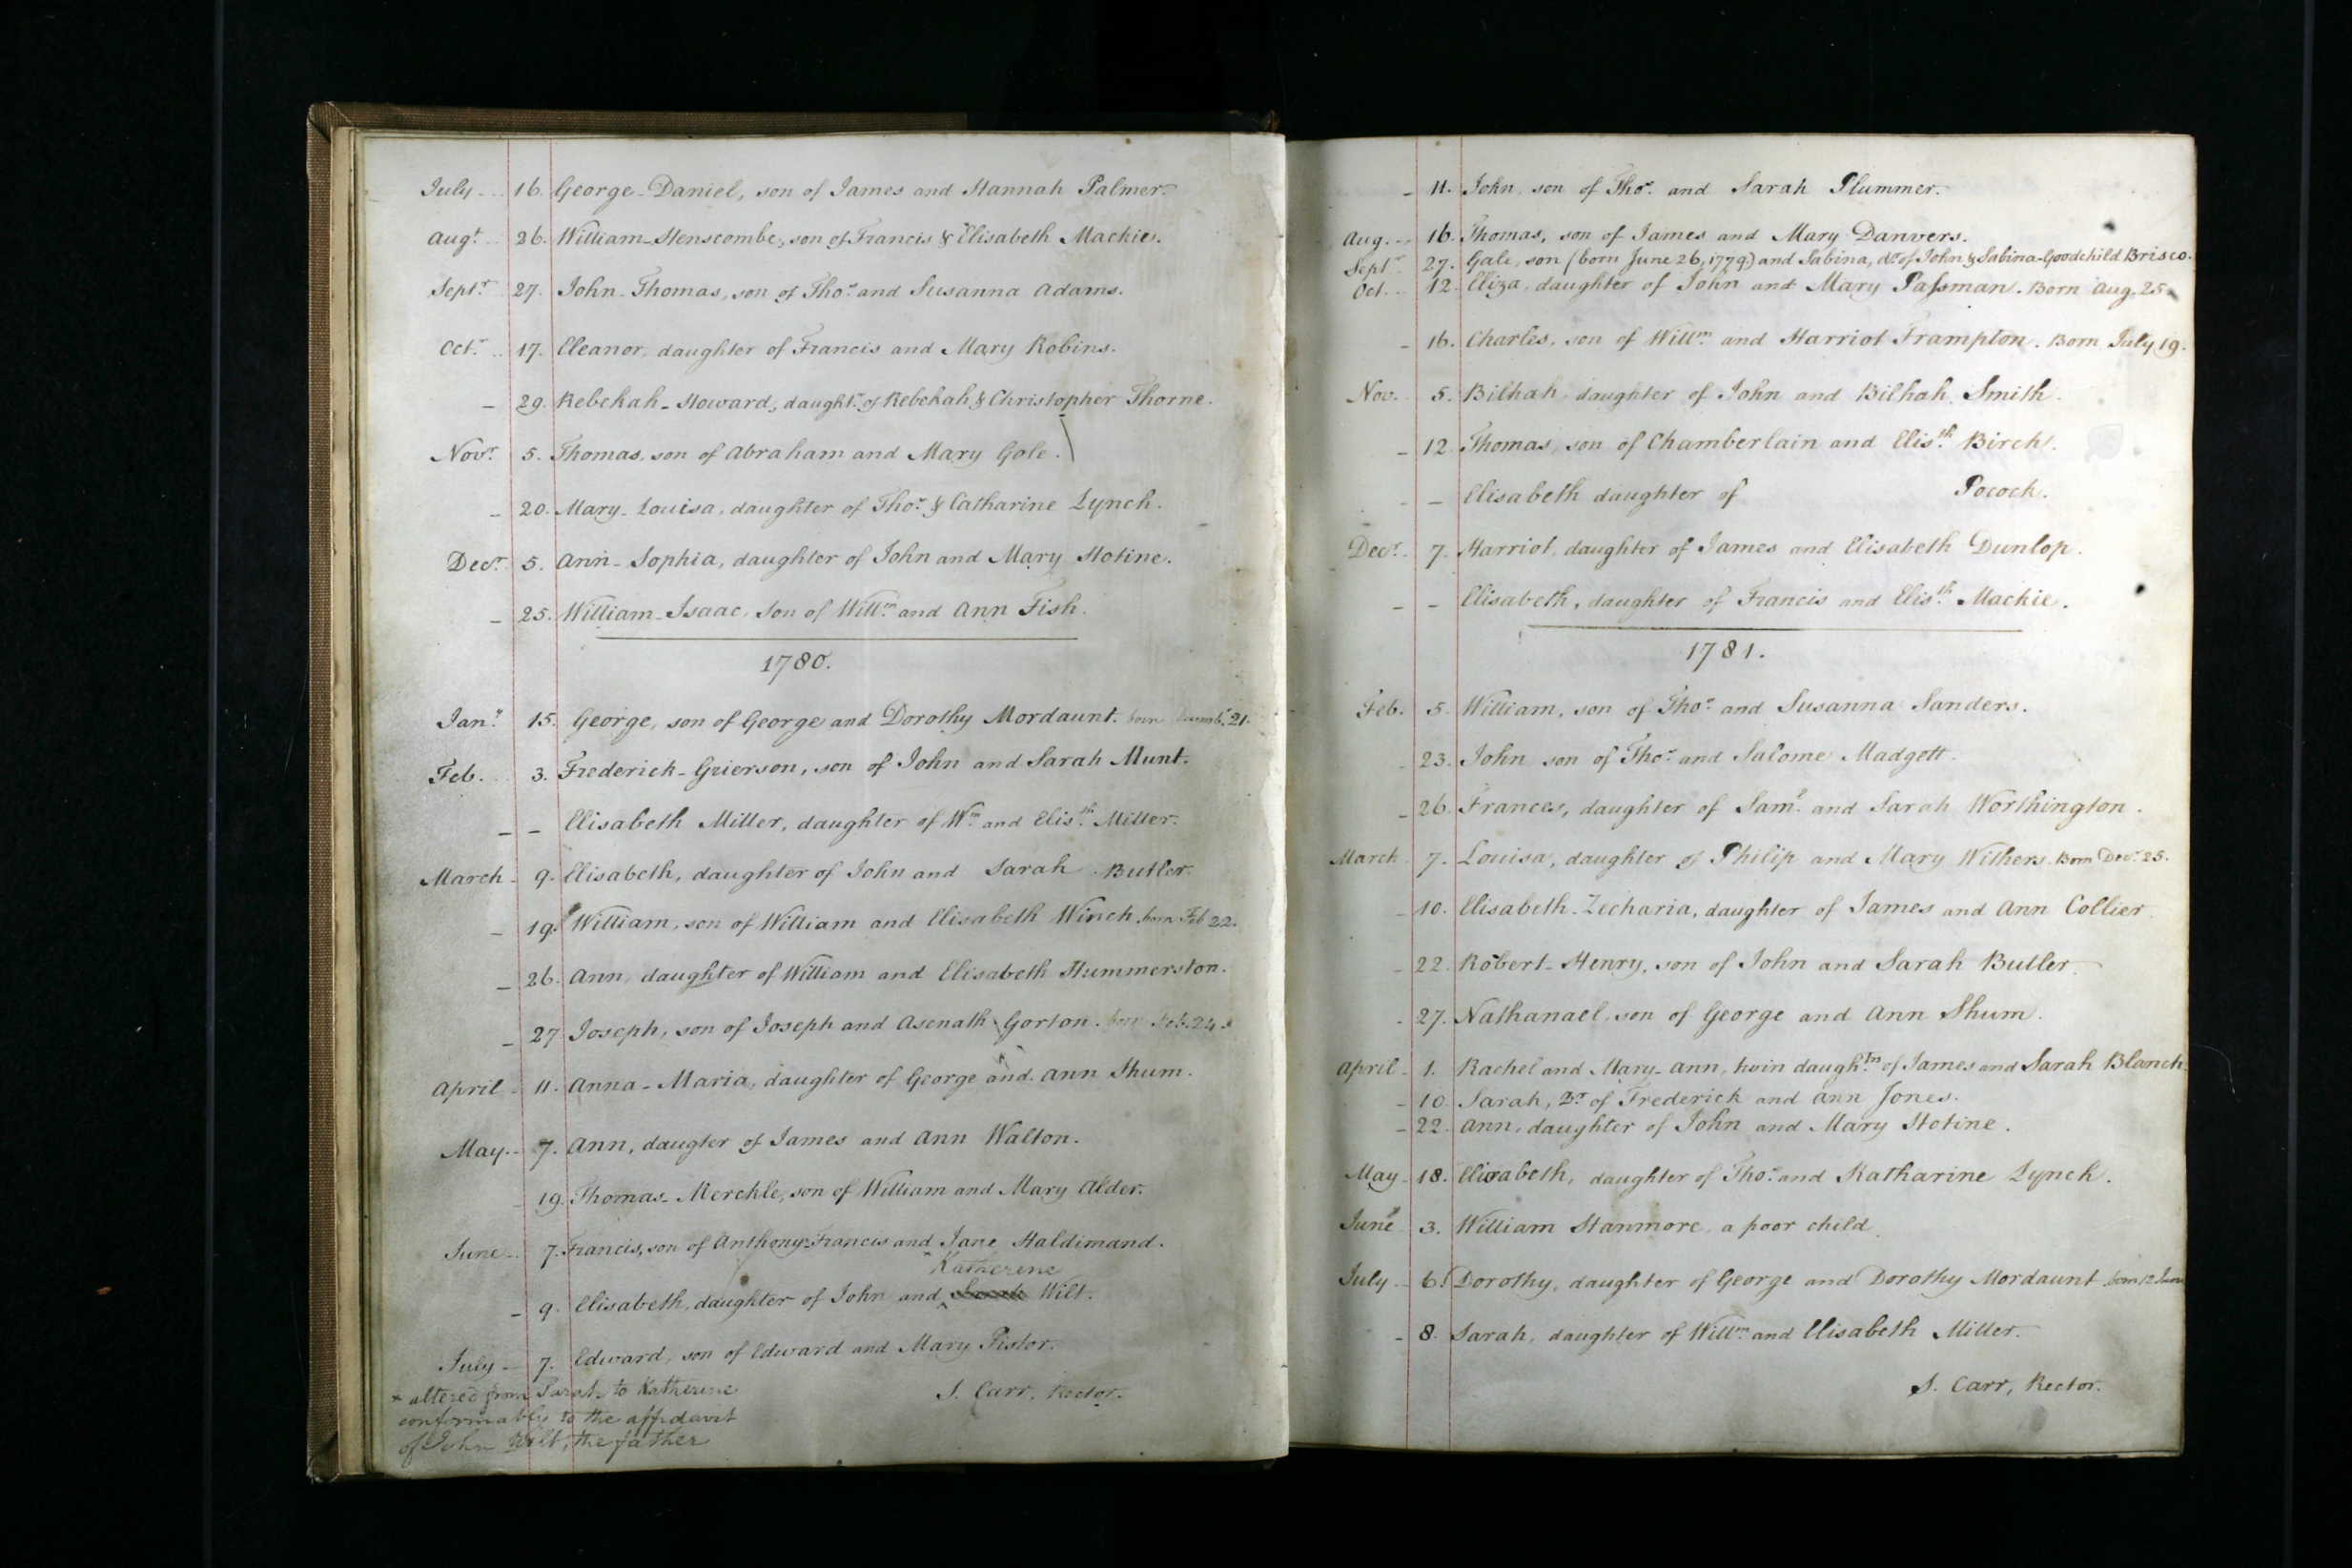 July 16. George-Daniel, son of James and Hannah Palmer.
Augt. 26. William-Henscombe, son of Francis & Elisabeth Mackie.
Septr. 27. John-Thomas, son of Thos. and Susanna Adams.
Octr. 17. Eleanor, daughter of Francis and Mary Robins.
– 29. Rebekah-Howard, daughtr. of Rebekah & Christopher Thorne.
Novr. 5. Thomas, son of Abraham and Mary Gole.
– 20. Mary-Louisa, daughter of Thos. & Catharine Lynch.
Decr. 5. Ann-Sophia, daughter of John and Mary Hotine.
– 25. William-Isaac, Son of Willm. and Ann Fish.
1780.
Jany. 15. George, son of George and Dorothy Mordaunt. born Decembr. 21.
Feb. 3. Frederick-Grierson, son of John and Sarah Munt.
– – Elisabeth Miller, daughter of Wm. and Elisth. Miller.
March – 9. Elisabeth, daughter of John and Sarah Butler.
– 19. William, son of William and Elisabeth Winch. born Feb 22.
– 26. Ann, daughter of William and Elisabeth Hummerston.
– 27 Joseph, son of Joseph and Asenath Gorton. born Feb. 24.
April – 11. Anna-Maria, daughter of George and Ann Shum.
May – 7. Ann, daugter of James and Ann Walton.
– 19. Thomas-Merckle, son of William and Mary Alder.
June – 7. Francis, son of Anthony-Francis and Jane Haldimand.
Katherine
– 9. Elisabeth, daughter of John and Sarah Wilt.
July – 7. Edward, son of Edward and Mary Pistor.
S. Carr, Rector.
× altered from Sarah to Katherine
conformably to the affidavit
of John Wilt, the father
– 11. John, son of Thos. and Sarah Plummer.
Aug. – 16. Thomas, son of James and Mary Danvers.
Septr. 27. Gale, son (born June 26, 1779) and Sabina, dr. of John & Sabina-Goodchild Brisco.
Oct. 12. Eliza, daughter of John and Mary Passman. Born Aug. 25.
– 16. Charles, son of Willm. and Harriot Frampton. Born July 19.
Nov. 5. Bilhah, daughter of John and Bilhah Smith.
– 12 Thomas, son of Chamberlain and Elisth. Birch.
– – Elisabeth daughter of Pocock.
Decr. 7. Harriot, daughter of James and Elisabeth Dunlop.
– – Elisabeth, daughter of Francis and Elisth. Mackie.
1781.
Feb. 5. William, son of Thos. and Susanna Sanders.
– 23. John son of Thos. and Salome Madgett.
– 26. Frances, daughter of Saml. and Sarah Worthington.
March 7. Louisa, daughter of Philip and Mary Withers. Born Decr. 25.
– 10. Elisabeth-Zecharia, daughter of James and Ann Collier.
– 22. Robert-Henry, son of John and Sarah Butler.
– 27. Nathanael, son of George and Ann Shum.
April – 1. Rachel and Mary-Ann, twin daughtrs. of James and Sarah Blanch.
– 10. Sarah, Dr. of Frederick and Ann Jones.
– 22. Ann, daughter of John and Mary Hotine.
May – 18. Elisabeth, daughter of Thos. and Katharine Lynch.
June 3. William Stanmore a poor child.
July – 6. Dorothy, daughter of George and Dorothy Mordaunt born 12 June
– 8. Sarah, daughter of Willm. and Elisabeth Miller.
S. Carr, Rector.